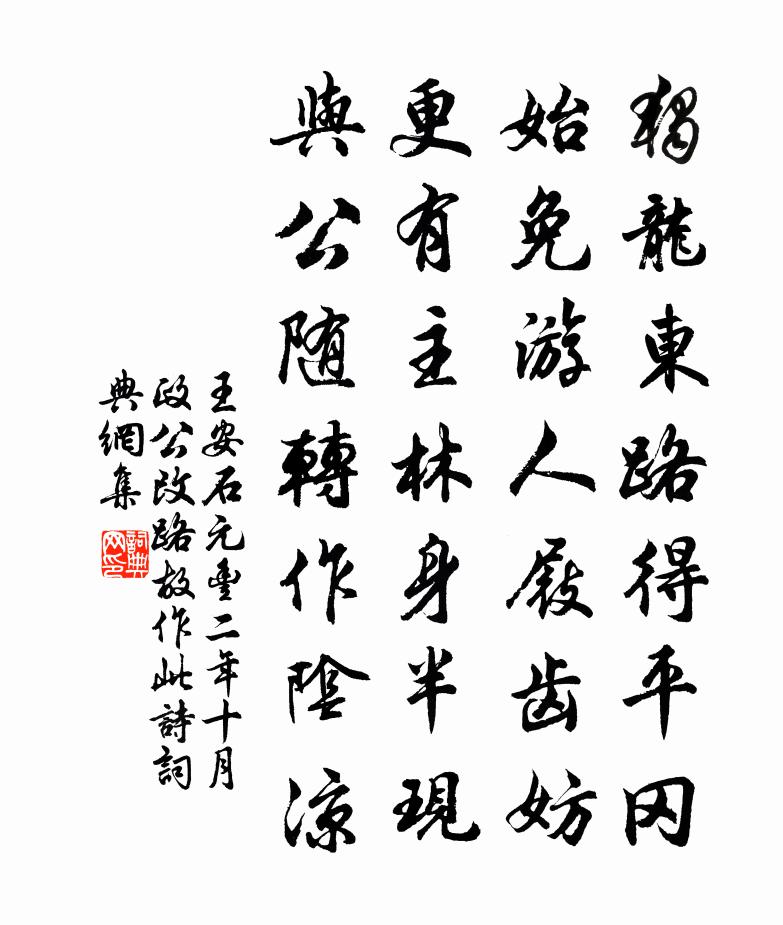 獨龍東路得平冈
始免游人屐齿妨
更有主林身半現
與公随轉作陰涼
王安石元豐二年十月
政公改路故作此詩詞
典網集
詞典
网印